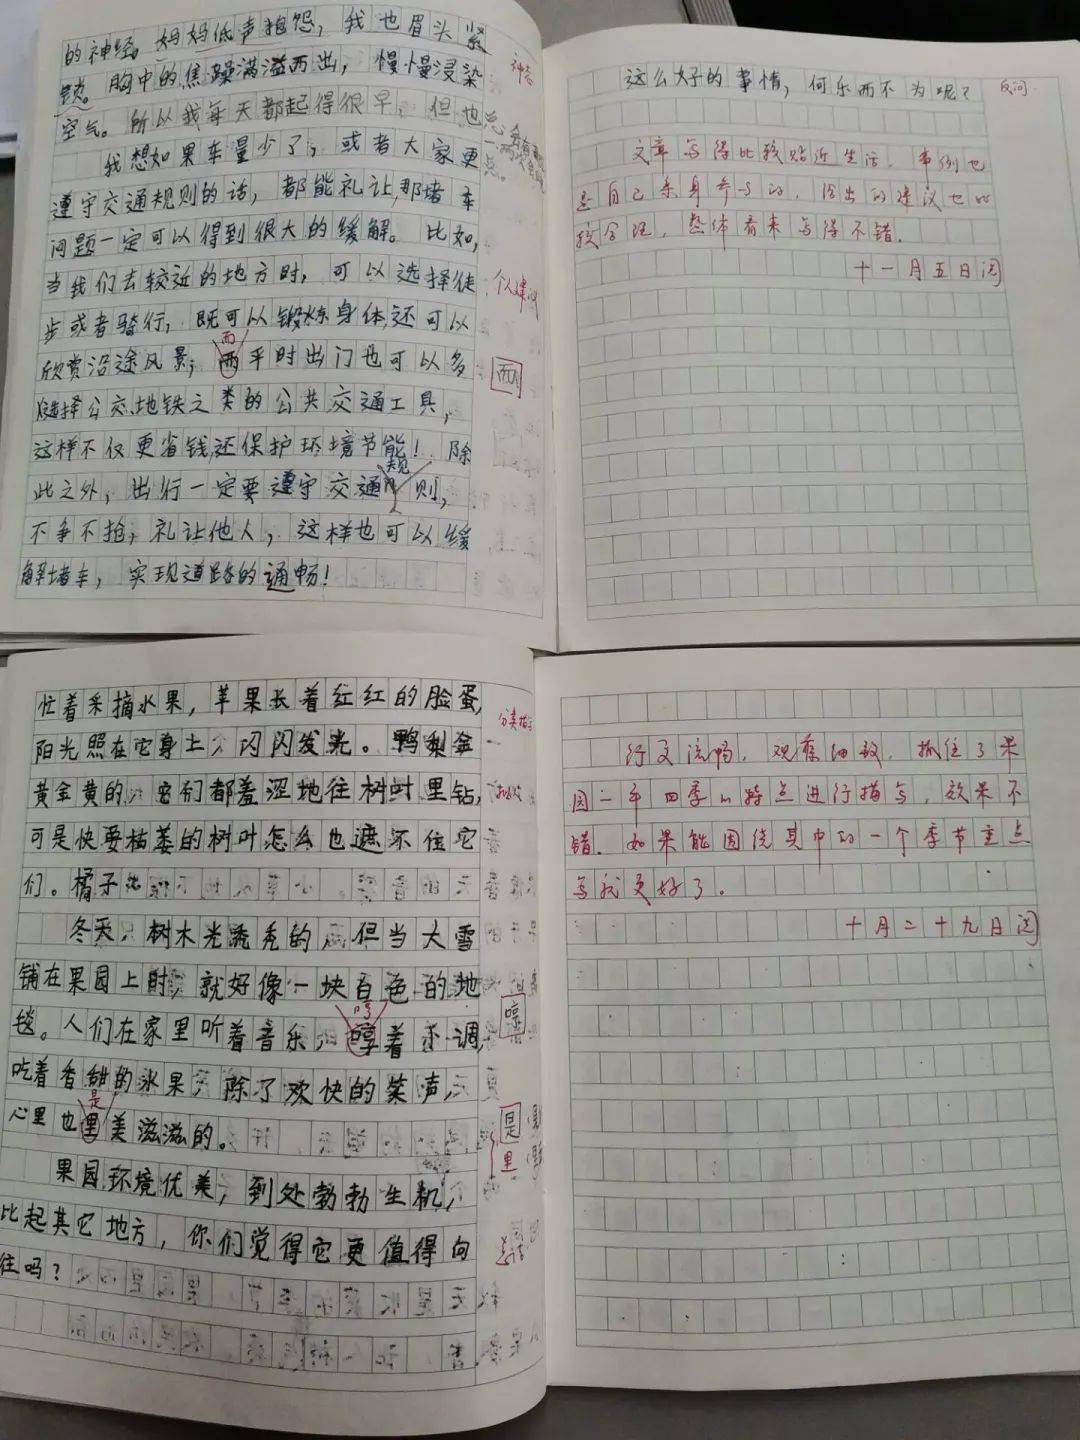 的神经。妈妈低声抱怨，我也眉头紧
锁。胸中的焦躁满溢而出，慢慢浸染
空气。所以我每天都起得很早，但也
我想如果车量少了，或者大家更
遵守交通规则的话，都能礼让，那堵车
问题一定可以得到很大的缓解。比如，
当我们去较近的地方时，可以选择徒
步或者骑行，既可以锻炼身体，还可以
欣赏沿途风景；而平时出门也可以多
选择公交、地铁之类的公共交通工具，
这样不仅更省钱，还保护环境节能！除
此之外，出行一定要遵守交通规则，
不争不抢，礼让他人，这样也可以缓
解堵车，实现道路的通畅！
神态
个人建议
而
这么好的事情，何乐而不为呢？
反问
文章写得比较贴近生活，事例也
是自己亲身参与的，给出的建议也比
较合理，整体看来写得不错。
十一月五日阅
忙着采摘水果，苹果长着红红的脸蛋，
阳光照在它身上，闪闪发光。鸭梨金
黄金黄的，它们都羞涩地往树叶里钻，
可是快要枯萎的树叶怎么也遮不住它
们。橘子
冬天，树木光秃秃的，但当大雪
铺在果园上时，就好像一块白色的地
毯。人们在家里听着音乐，哼着小调，
吃着香甜的水果，除了欢快的笑声，
心里也是美滋滋的。
果园环境优美，到处勃勃生机，
比起其它地方，你们觉得它更值得向
往吗？
分类描写
拟人
哼
是
里
总结
行文流畅，观察细致，抓住了果
园一年四季的特点进行描写，效果不
错。如果能围绕其中的一个季节重点
写就更好了。
十月二十九日阅